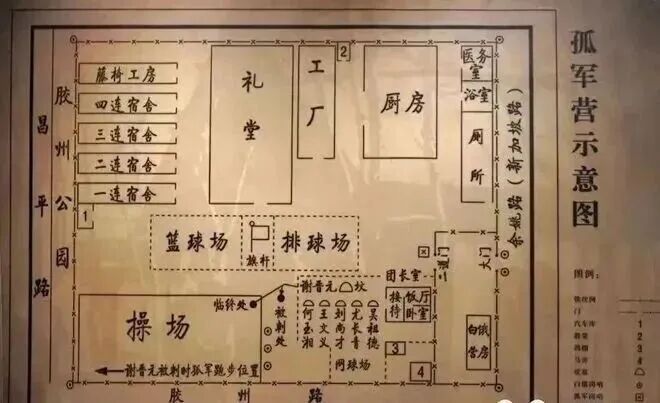 孤军营示意图
昌平路
胶州公园
藤椅工房
四连宿舍
三连宿舍
二连宿舍
一连宿舍
1
礼堂
工厂
2
厨房
医务室
浴室
厕所
余姚路(新加坡路)
篮球场
旗杆
排球场
二道门
大门
团长室
谢晋元坟
接待
饭厅
卧室
临终处
被刺处
何玉湘
王文义
刘尚才
尤长青
吴祖德
操场
谢晋元被刺时孤军跑步位置
网球场
3
4
白俄营房
胶州路
图例:
铁丝网
门
汽车库
1
2
3
4